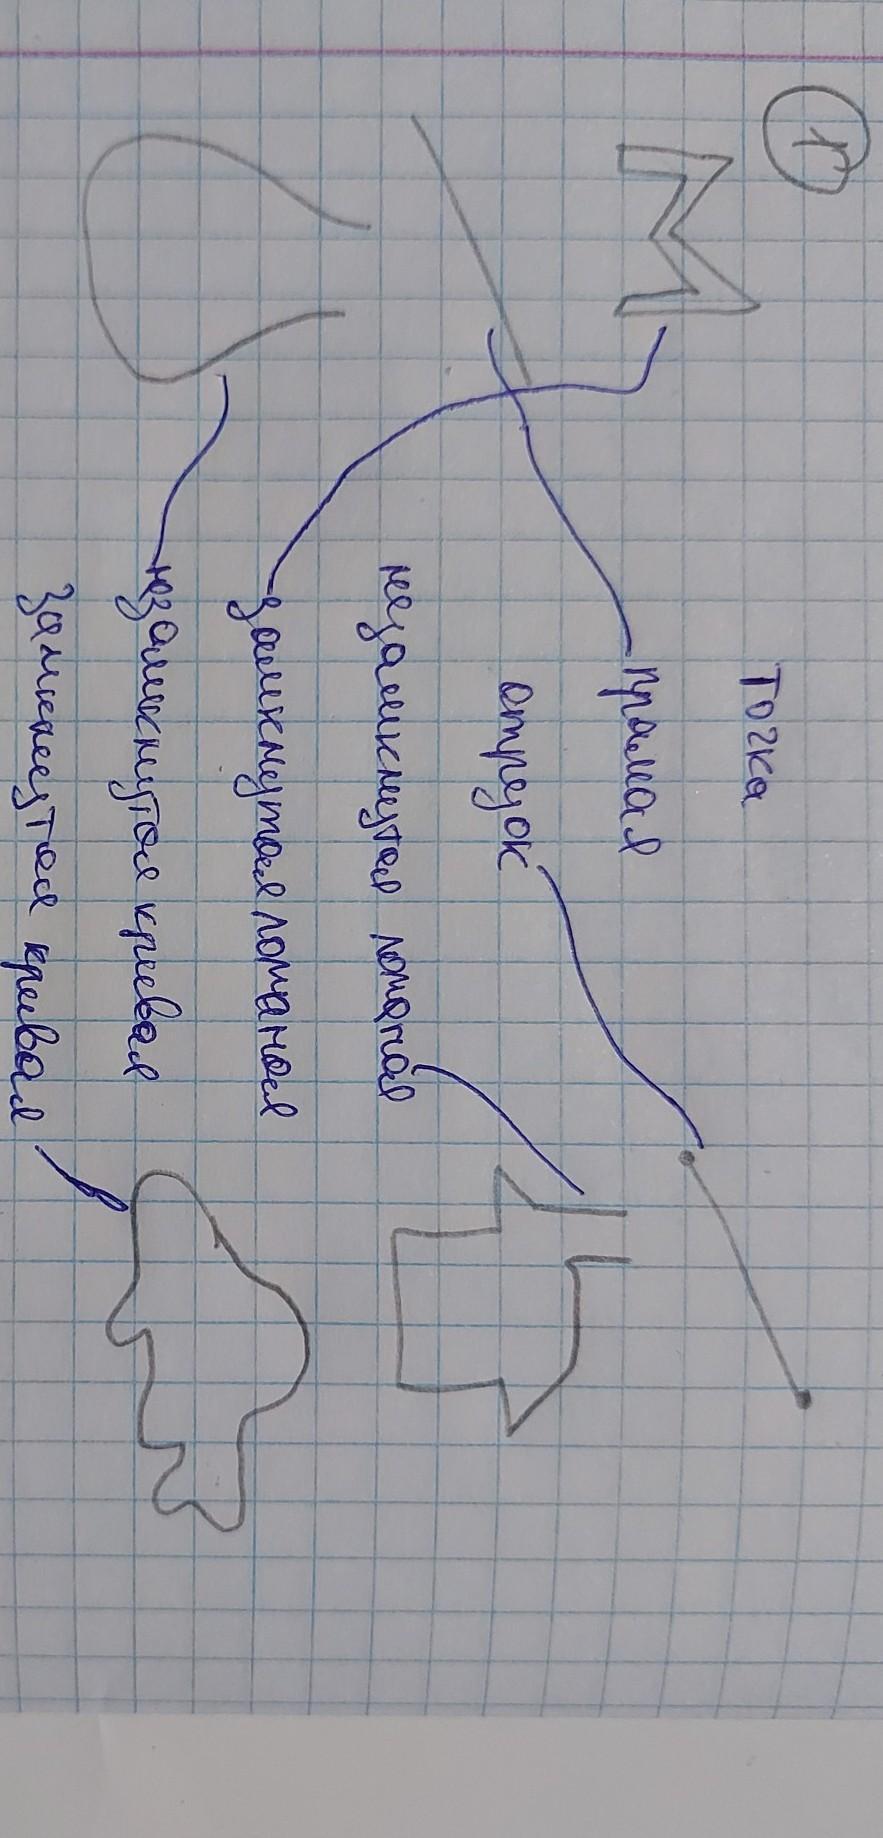 1
Точка
прямая
отрезок
незамкнутая ломаная
замкнутая ломаная
незамкнутая кривая
замкнутая кривая